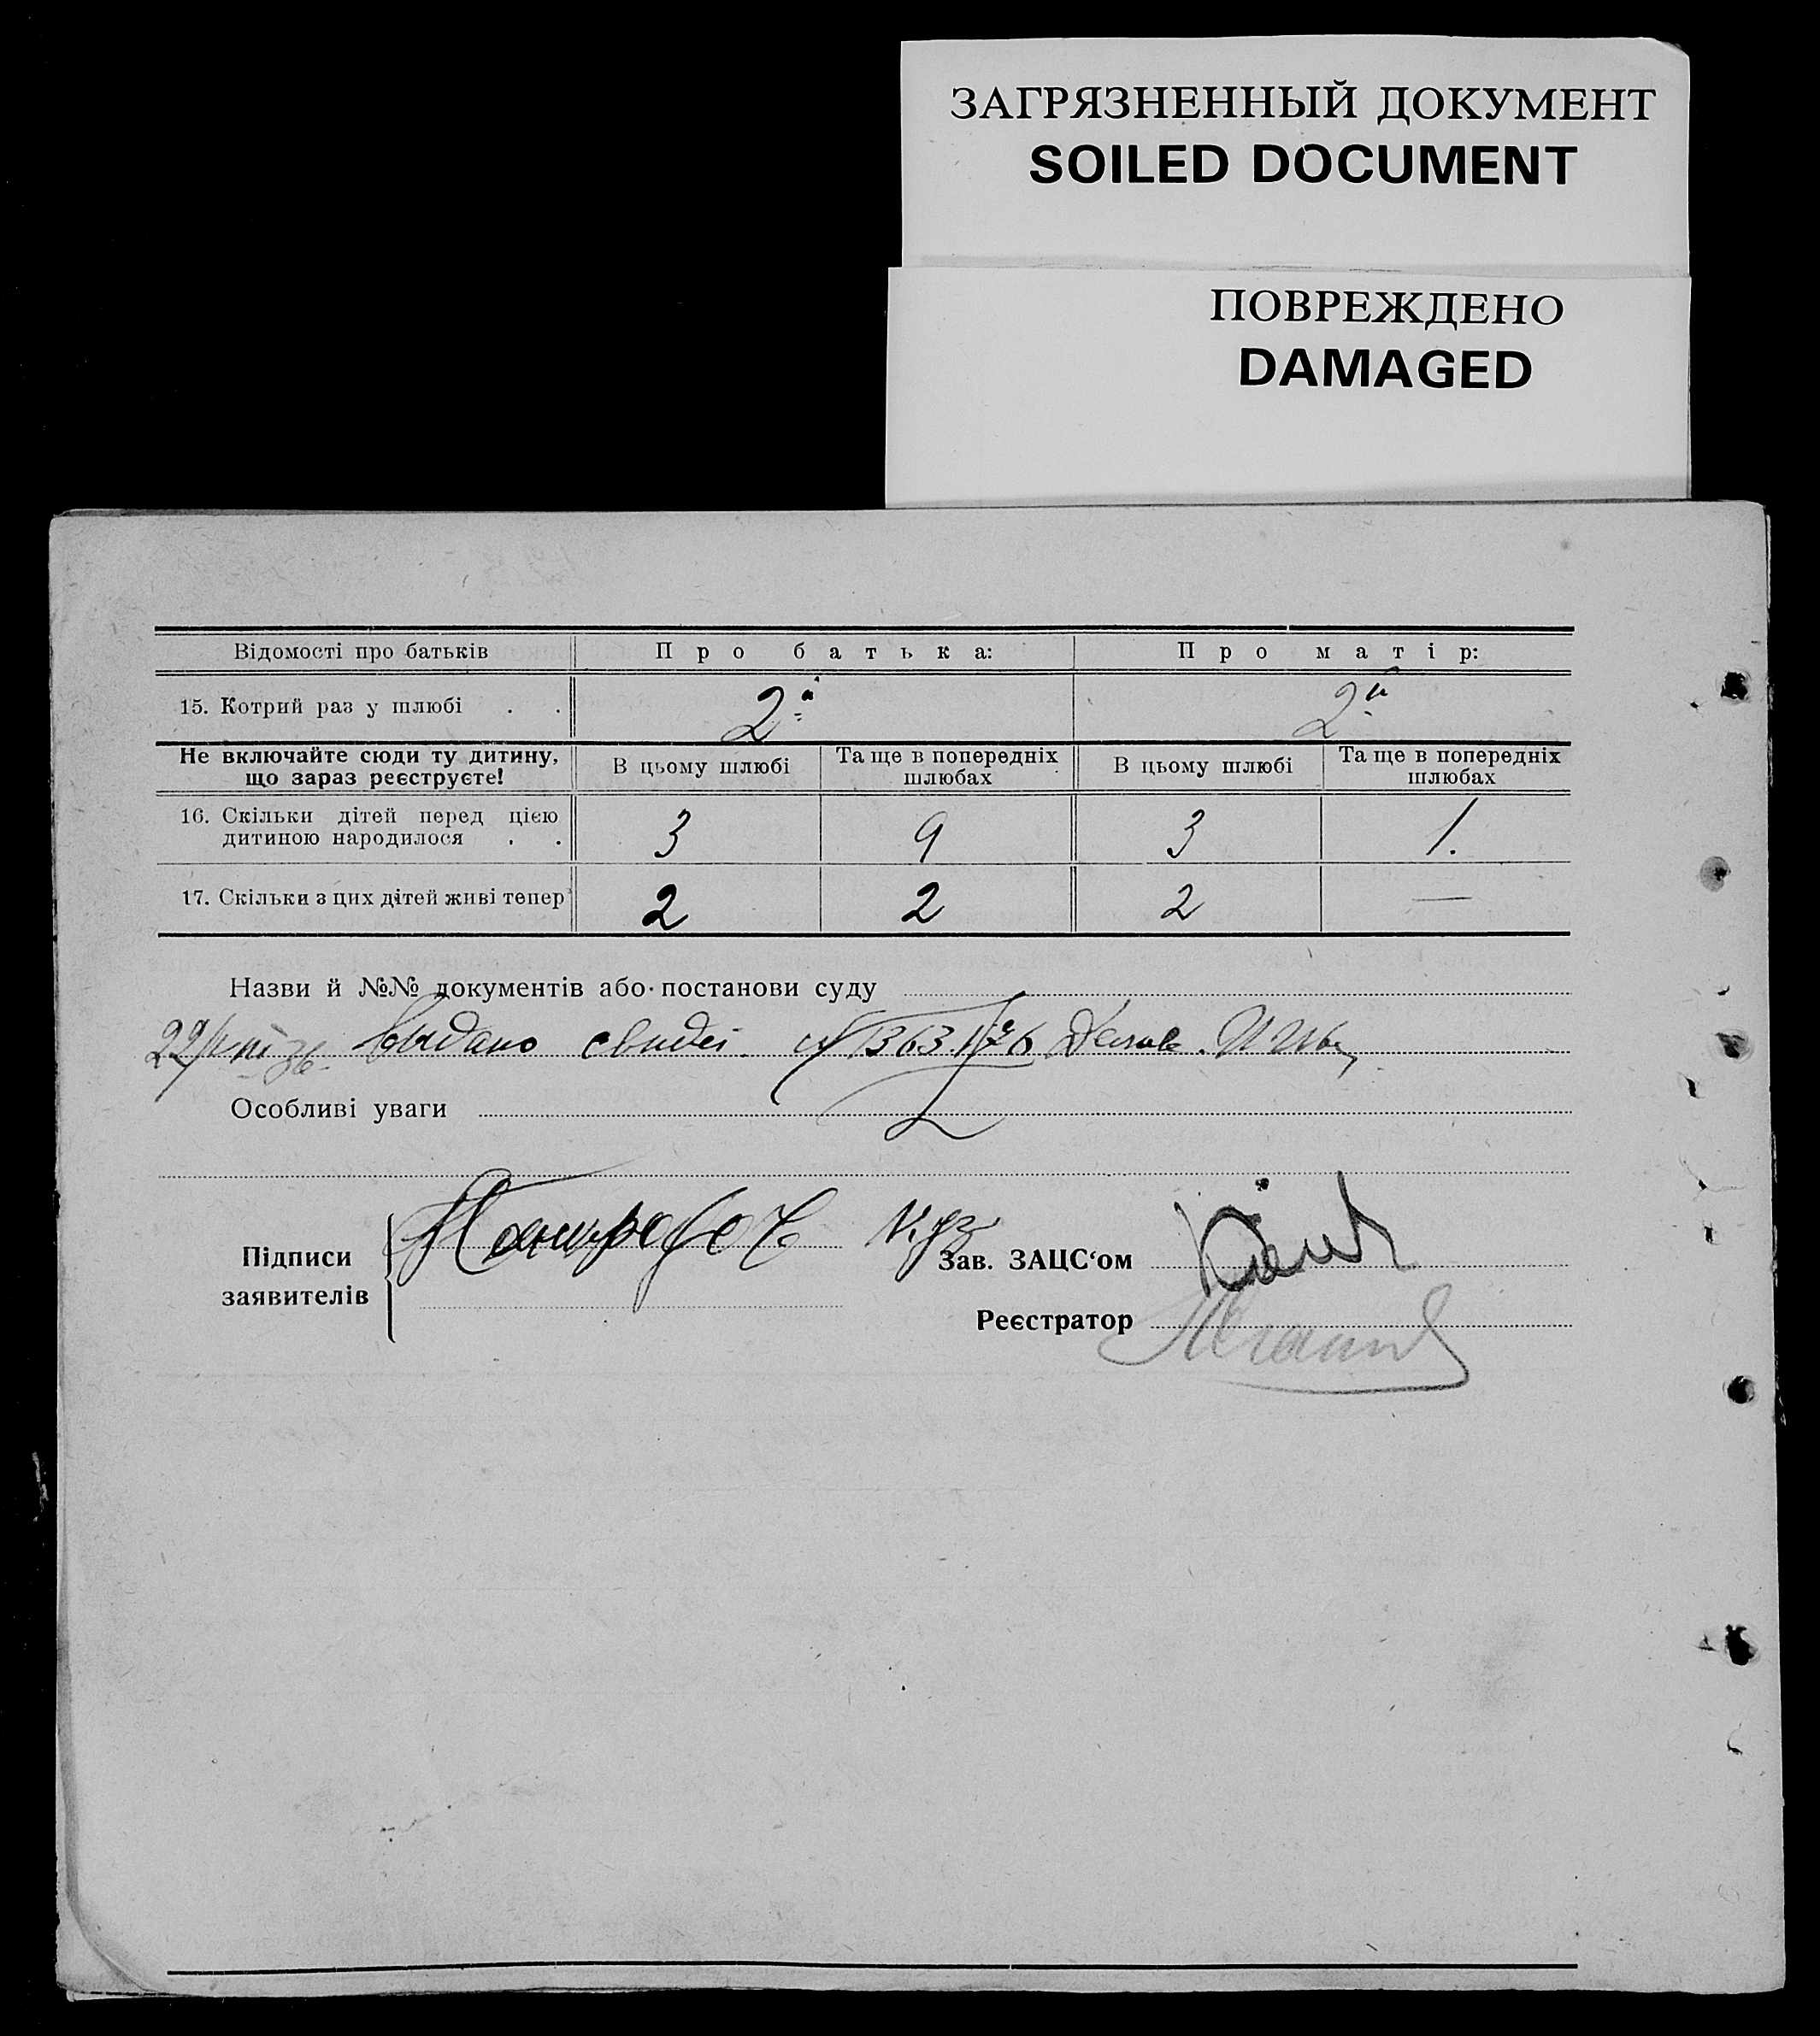 ЗАГРЯЗНЕННЫЙ ДОКУМЕНТ
SOILED DOCUMENT
ПОВРЕЖДЕНО
DAMAGED
Відомості про батьків Про батька: Про матір:
15. Котрий раз у шлюбі . . 2й 2й
Не включайте сюди ту дитину, що зараз реєструєте! В цьому шлюбі Та ще в попередніх шлюбах В цьому шлюбі Та ще в попередніх шлюбах
16. Скільки дітей перед цією
дитиною народилося . . 3 9 3 1.
17. Скільки з цих дітей живі тепер 2 2 2 —
Назви й №№ документів або постанови суду
видано свидет.
Особливі уваги
Підписи
заявителів
Зав. ЗАЦС‘ом
Реєстратор